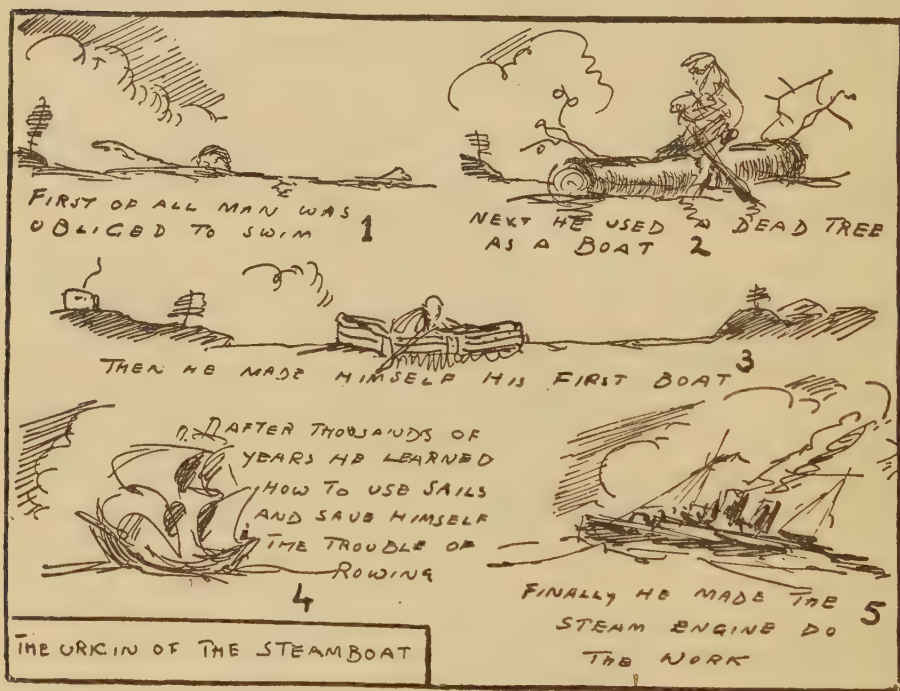 FIRST OF ALL MAN WAS
OBLIGED TO SWIM 1
NEXT HE USED A DEAD TREE
AS A BOAT 2
THEN HE MADE HIMSELF HIS FIRST BOAT 3
AFTER THOUSANDS OF
YEARS HE LEARNED
HOW TO USE SAILS
AND SAVE HIMSELF
THE TROUBLE OF
ROWING
4
FINALLY HE MADE THE
STEAM ENGINE DO
THE WORK
5
THE ORIGIN OF THE STEAMBOAT